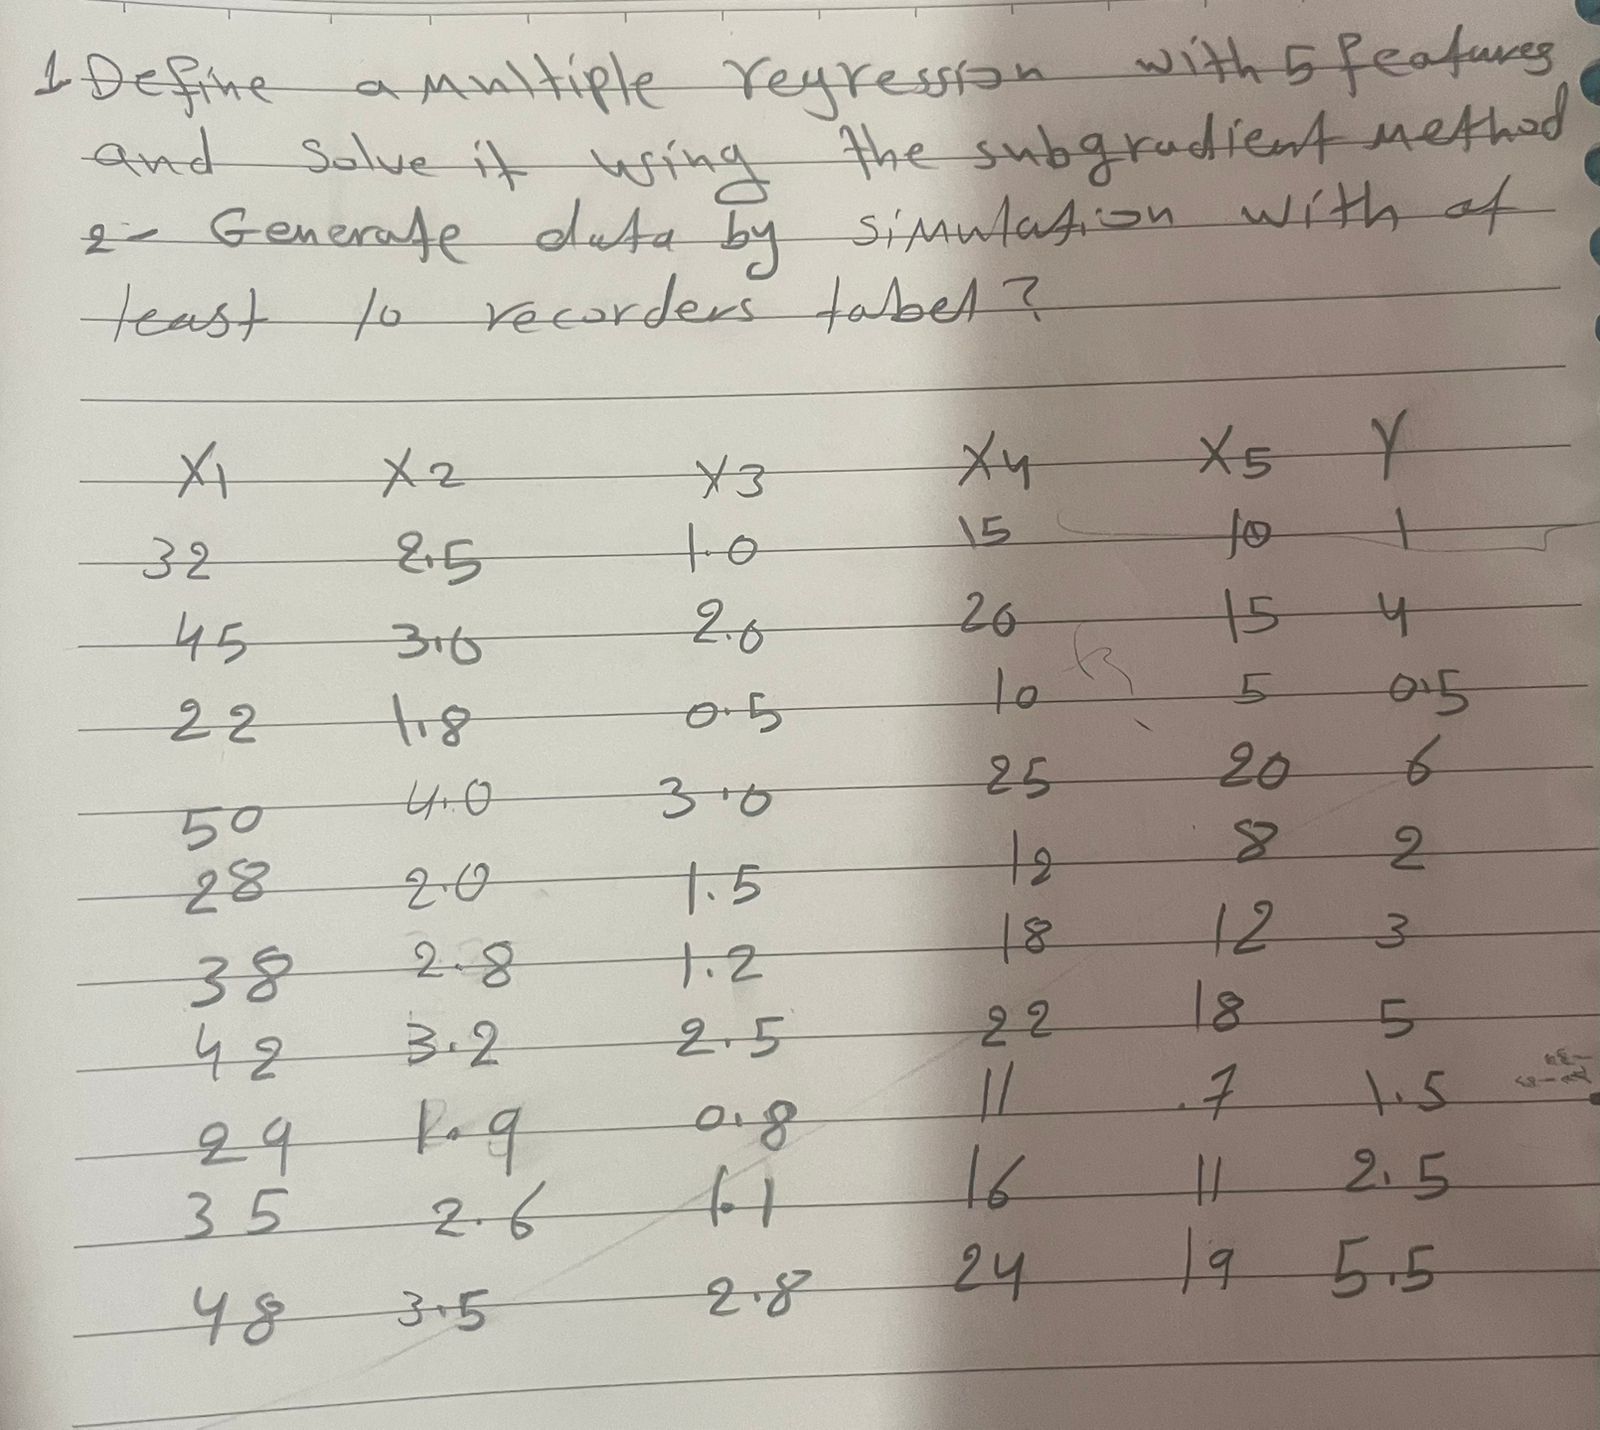 1- Define a multiple regression with 5 features
and solve it using the subgradient method
2- Generate data by simulation with at
least 10 recorders tabel?
X1 X2 X3 X4 X5 Y
32 2.5 1.0 15 10 1
45 3.0 2.0 20 15 4
22 1.8 0.5 10 5 0.5
50 4.0 3.0 25 20 6
28 2.0 1.5 12 8 2
38 2.8 1.2 18 12 3
42 3.2 2.5 22 18 5
29 1.9 0.8 11 7 1.5
35 2.6 1.1 16 11 2.5
48 3.5 2.8 24 19 5.5